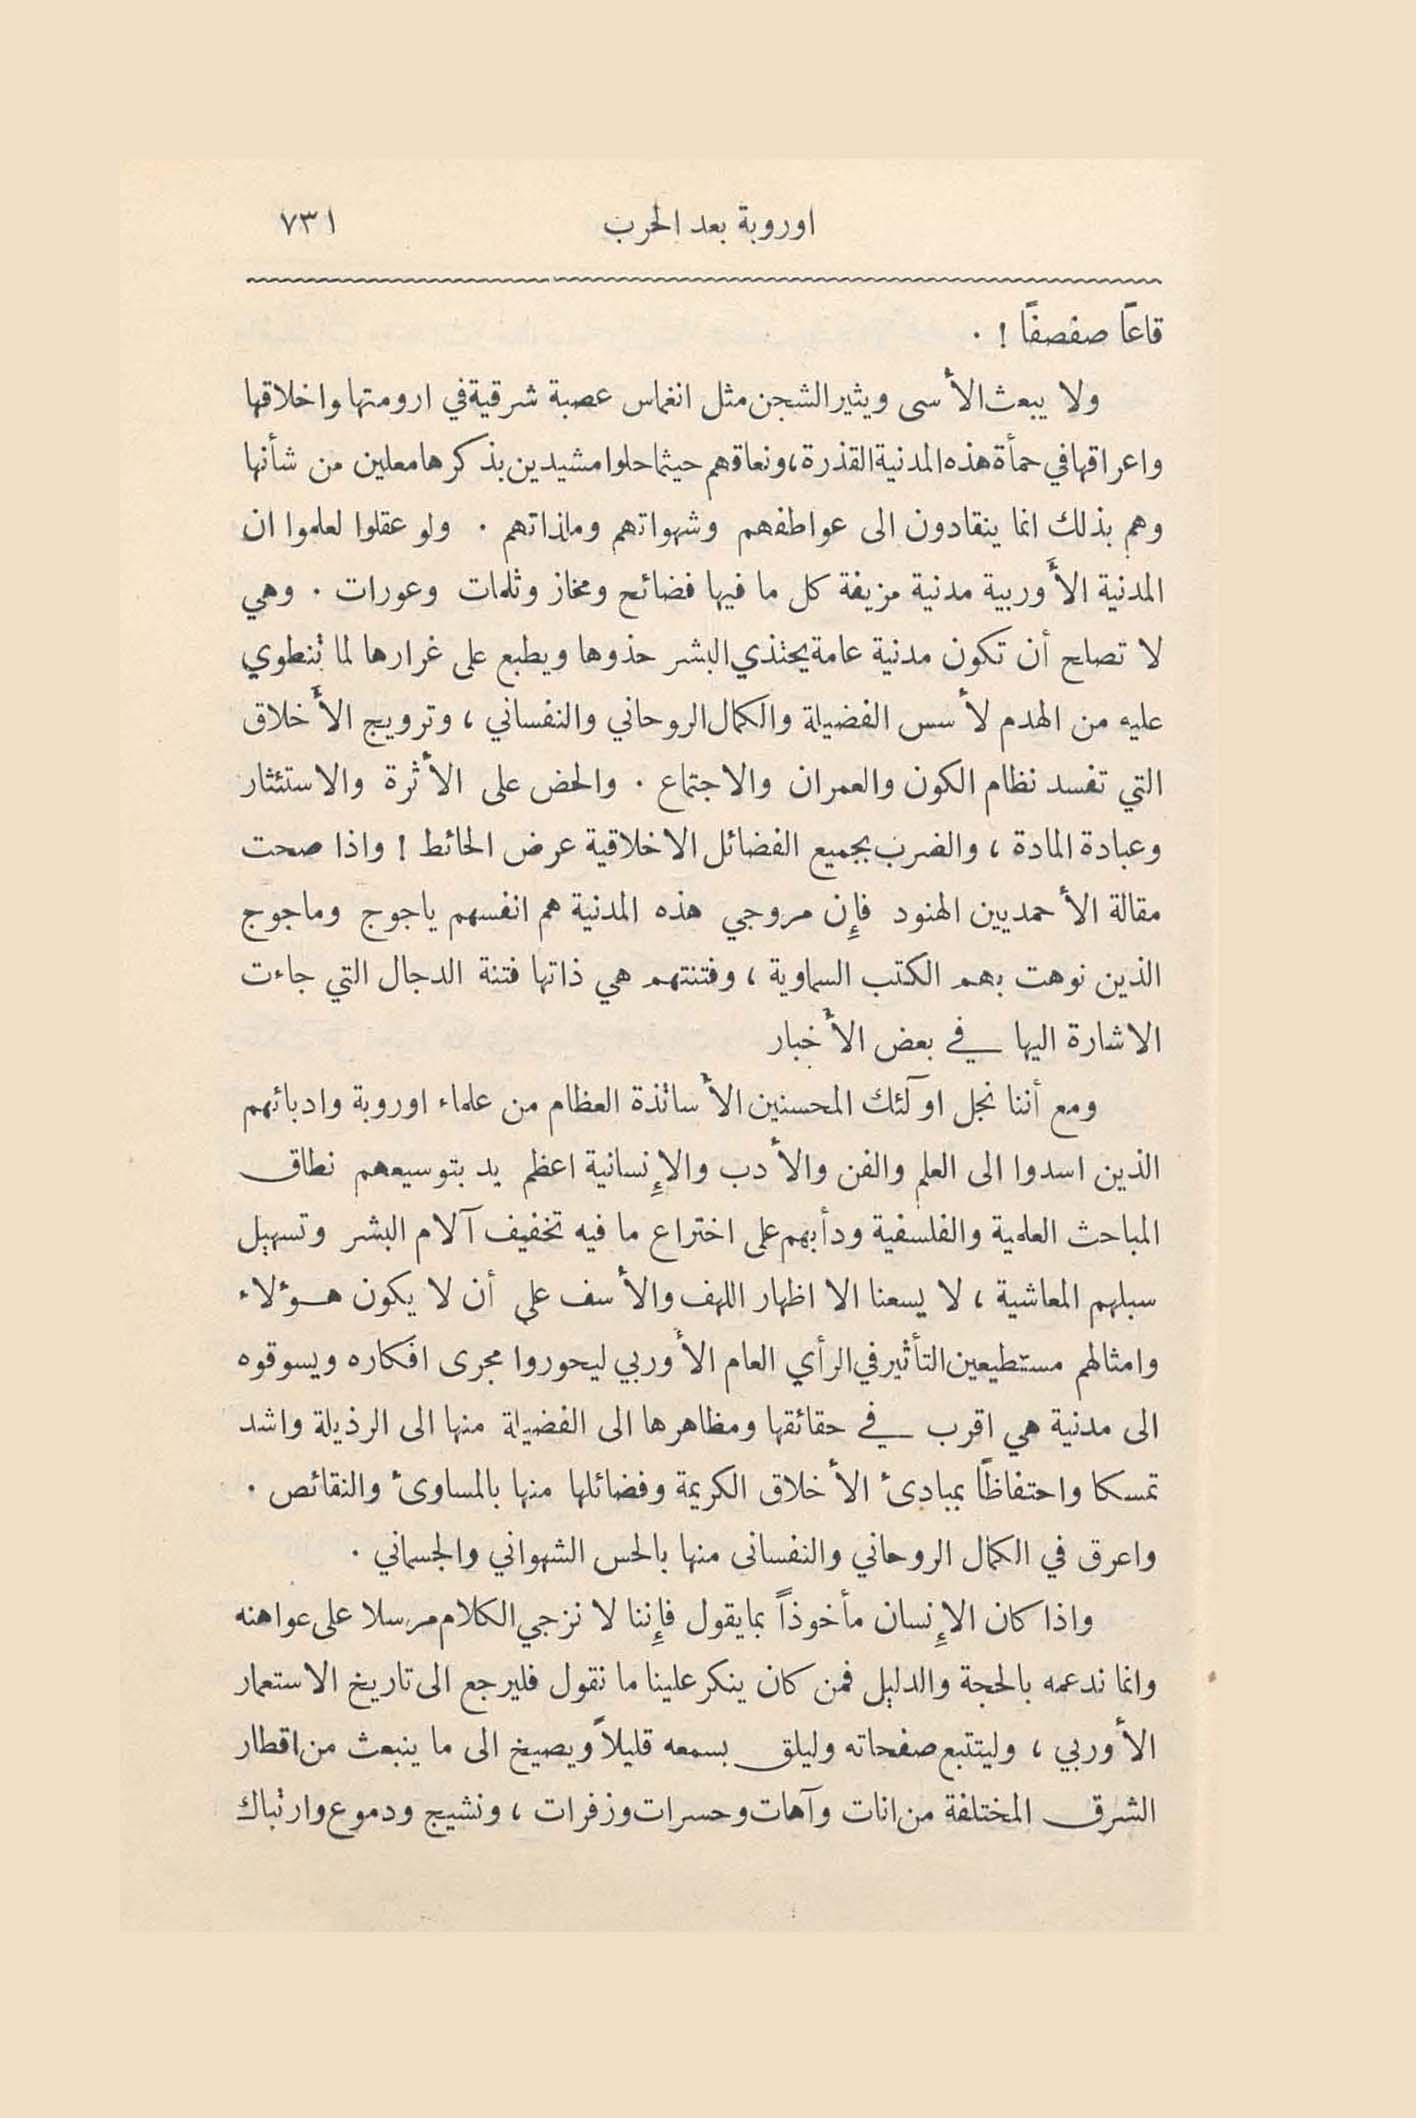 اوروبة بعد الحرب ٧٣١
قاعًا صفصفًا ! .
ولا يبعث الأسى ويثير الشجن مثل انغماس عصبة شرقية في ارومتها واخلاقها
واعراقها في حمأة هذه المدنية القذرة ، ونعاقهم حيثما حلوا مشيدين بذكرها معلين من شأنها
وهم بذلك انما ينقادون الى عواطفهم وشهواتهم وملذاتهم . ولو عقلوا لعلموا ان
المدنية الأوربية مدنية مزيفة كل ما فيها فضائح ومخاز وثلمات وعورات . وهي
لا تصلح أن تكون مدنية عامة يحتذي البشر حذوها ويطبع على غرارها لما تنطوي
عليه من الهدم لأسس الفضيلة والكمال الروحاني والنفساني ، وترويج الأخلاق
التي تفسد نظام الكون والعمران والاجتماع . والحض على الأثرة والاستئثار
وعبادة المادة ، والضرب بجميع الفضائل الاخلاقية عرض الحائط ! واذا صحت
مقالة الأحمديين الهنود فإن مروجي هذه المدنية هم انفسهم ياجوج وماجوج
الذين نوهت بهم الكتب السماوية ، وفتنتهم هي ذاتها فتنة الدجال التي جاءت
الاشارة اليها في بعض الأخبار
ومع أننا نجل اولئك المحسنين الأساتذة العظام من علماء اوروبة وادبائهم
الذين اسدوا الى العلم والفن والأدب والإنسانية اعظم يد بتوسيعهم نطاق
المباحث العلمية والفلسفية ودأبهم على اختراع ما فيه تخفيف آلام البشر وتسهيل
سبلهم المعاشية ، لا يسعنا الا اظهار اللهف والأسف على أن لا يكون هؤلاء
وامثالهم مستطيعين التأثير في الرأي العام الأوربي ليحوروا مجرى افكاره ويسوقوه
الى مدنية هي اقرب في حقائقها ومظاهرها الى الفضيلة منها الى الرذيلة واشد
تمسكا واحتفاظًا بمبادئ الأخلاق الكريمة وفضائلها منها بالمساوئ والنقائص .
واعرق في الكمال الروحاني والنفسانى منها بالحس الشهواني والجسماني .
واذا كان الإنسان مأخوذاً بما يقول فإننا لا نزجي الكلام مرسلا على عواهنه
وانما ندعمه بالحجة والدليل فمن كان ينكر علينا ما نقول فليرجع الى تاريخ الاستعمار
الأوربي ، وليتتبع صفحاته وليلق بسمعه قليلاً ويصيخ الى ما ينبعث من اقطار
الشرق المختلفة من انات وآهات وحسرات وزفرات ، ونشيج ودموع وارتباك